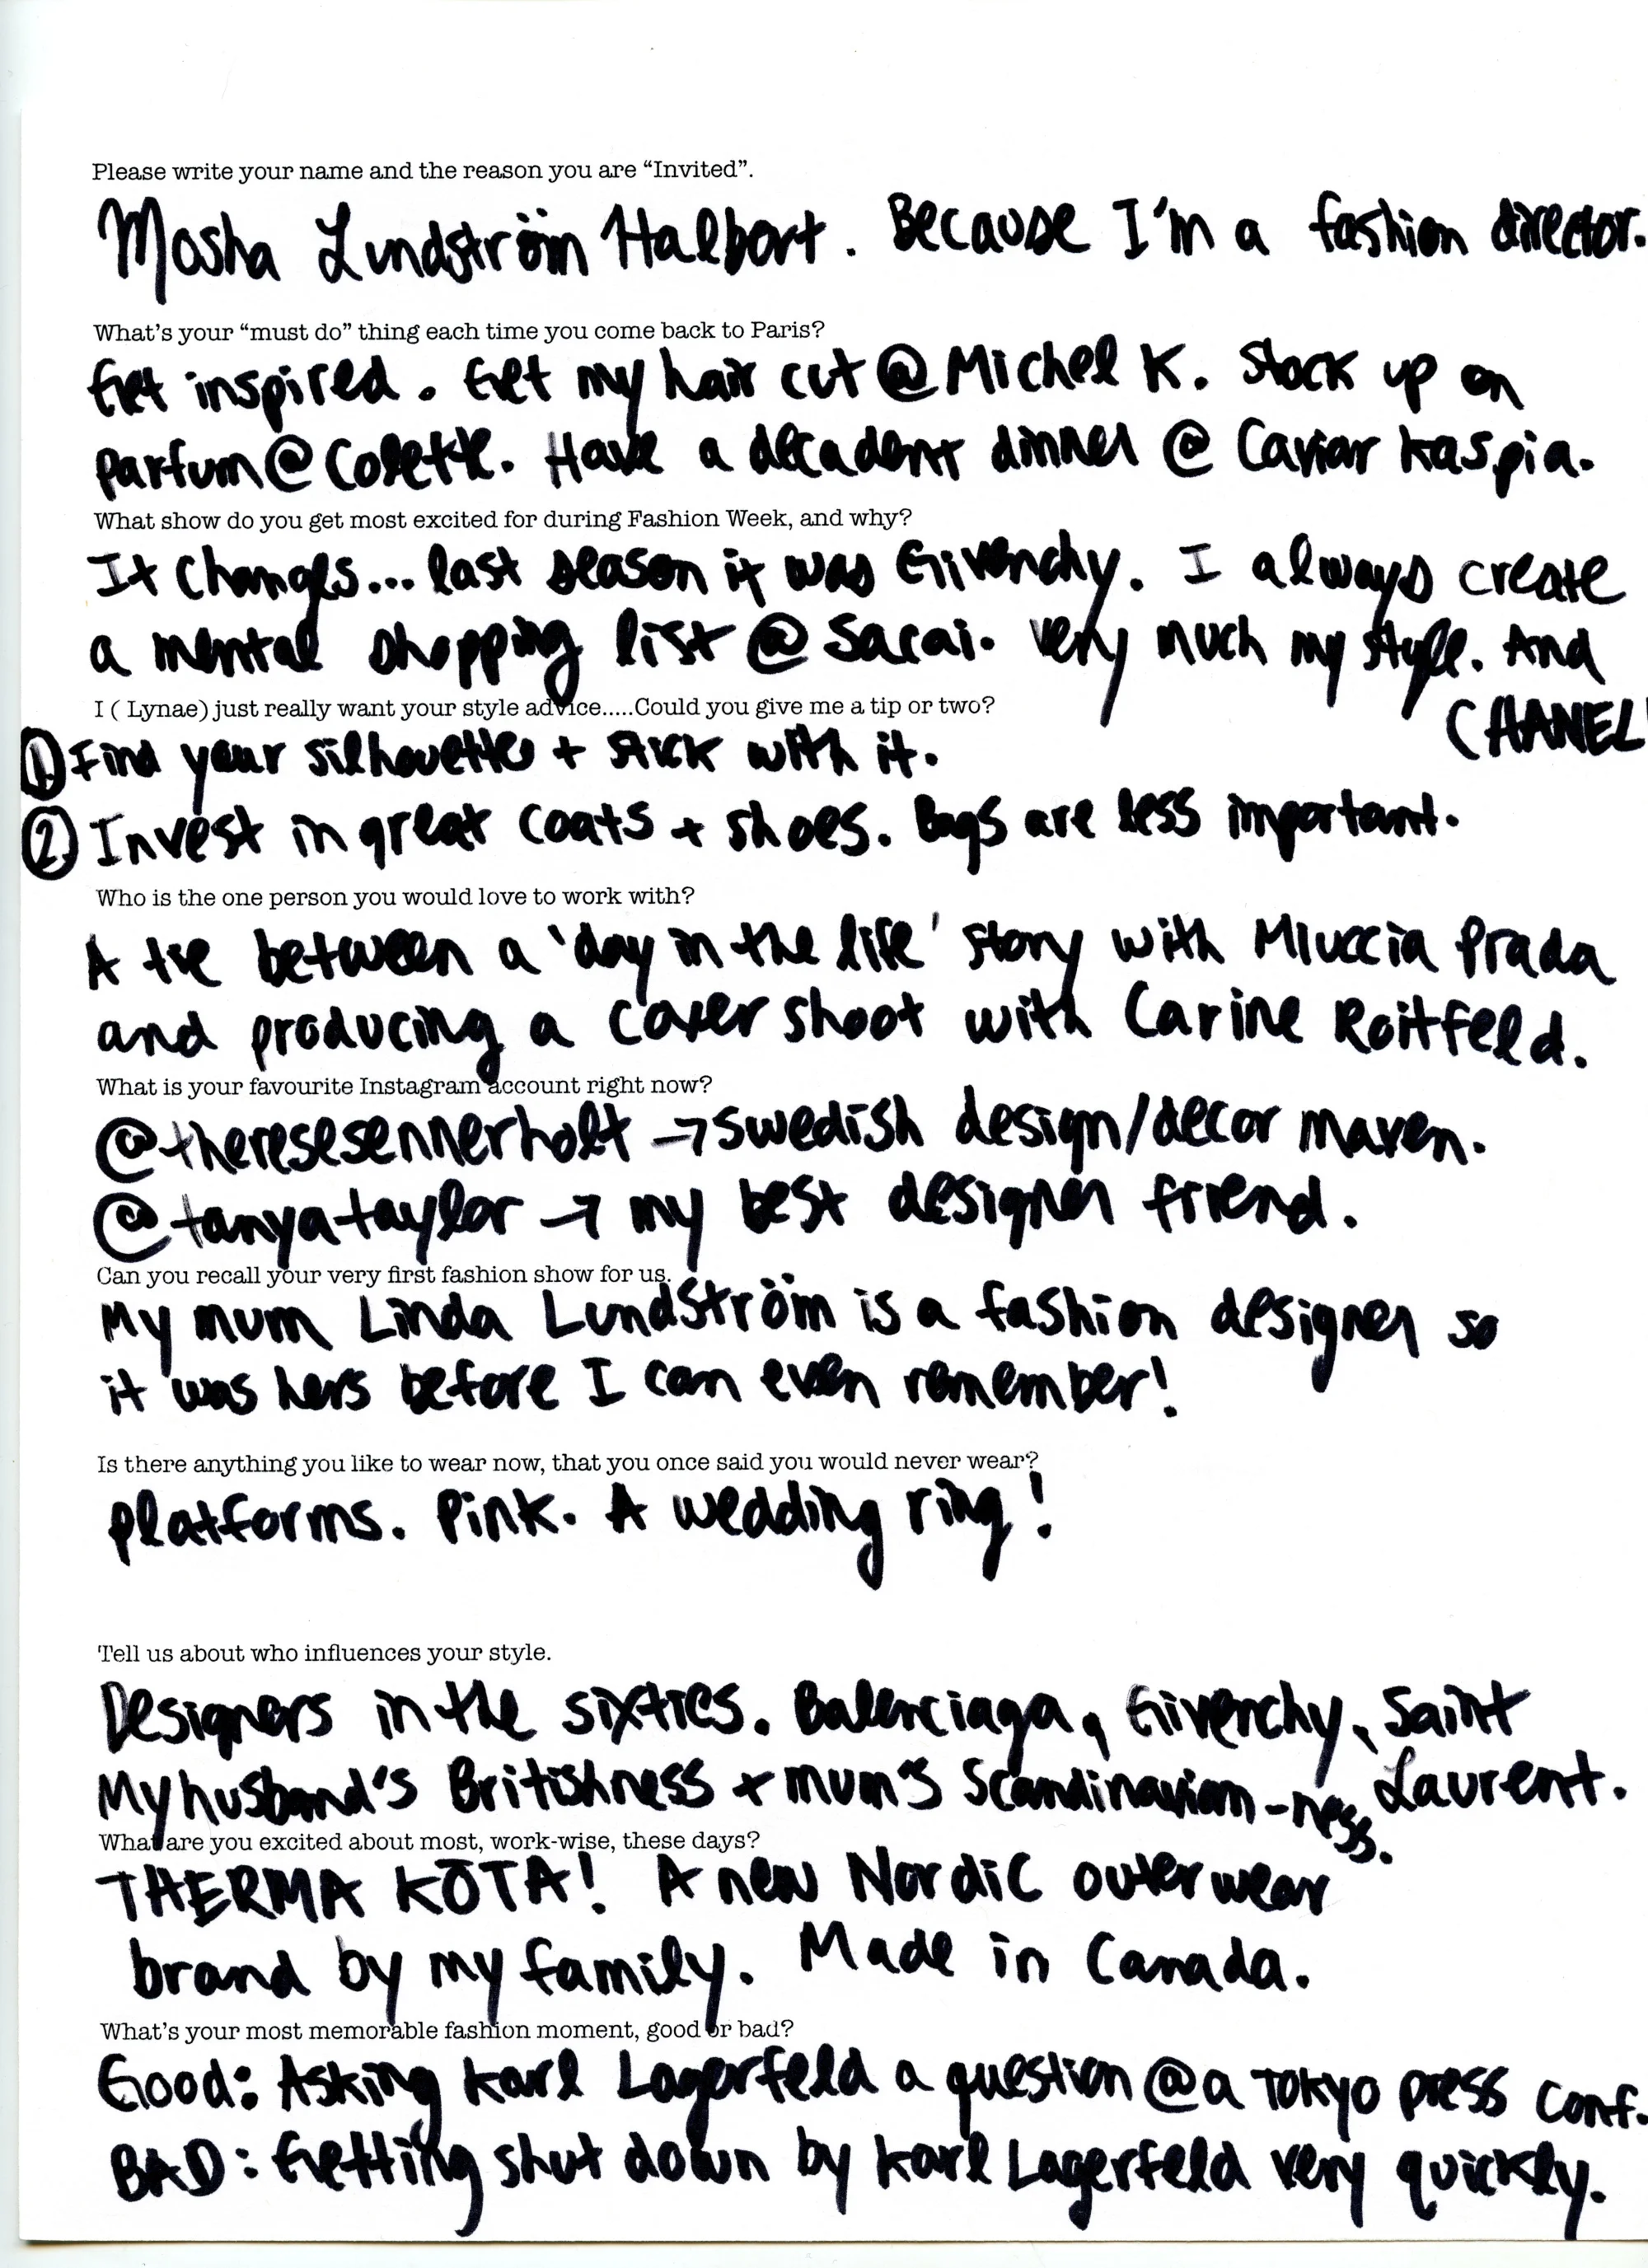 Please write your name and the reason you are “Invited”.
Mosha Lundström Halbert. Because I'm a fashion director.
What's your “must do” thing each time you come back to Paris?
Get inspired. Get my hair cut @ Michel K. Stock up on
parfum @ Colette. Have a decadent dinner @ Caviar Kaspia.
What show do you get most excited for during Fashion Week, and why?
It changes... last season it was Givenchy. I always create
a mental shopping list @ Sacai. Very much my style. And
CHANEL!
I ( Lynae) just really want your style advice.....Could you give me a tip or two?
1. Find your silhouette + stick with it.
2. Invest in great coats + shoes. Bags are less important.
Who is the one person you would love to work with?
A tie between a 'day in the life' story with Miuccia Prada
and producing a cover shoot with Carine Roitfeld.
What is your favourite Instagram account right now?
@theresesennerholt → swedish design/decor maven.
@tanyataylor → my best designer friend.
Can you recall your very first fashion show for us.
My mum Linda Lundström is a fashion designer so
it was hers before I can even remember!
Is there anything you like to wear now, that you once said you would never wear?
Platforms. Pink. A wedding ring!
Tell us about who influences your style.
Designers in the sixties. Balenciaga, Givenchy, Saint
Laurent.
My husband's Britishness + mum's Scandinavian-ness.
What are you excited about most, work-wise, these days?
THERMA KŌTA! A new Nordic outerwear
brand by my family. Made in Canada.
What's your most memorable fashion moment, good or bad?
Good: Asking Karl Lagerfeld a question @ a Tokyo press conf.
BAD: Getting shut down by Karl Lagerfeld very quickly.